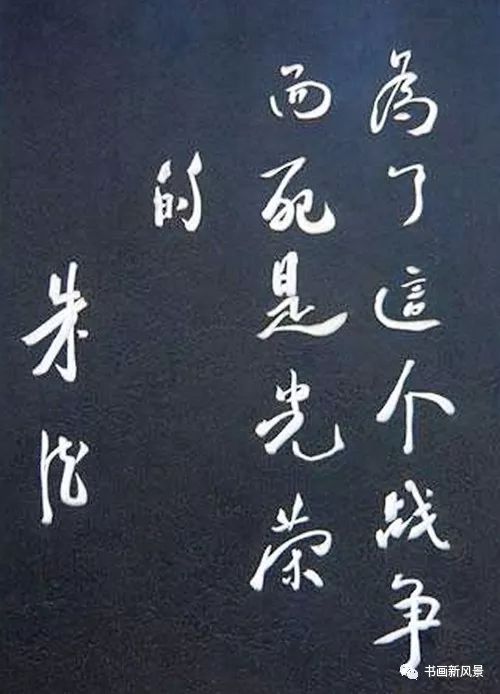 為了這个战争
而死是光荣
的
朱德
书画新风景